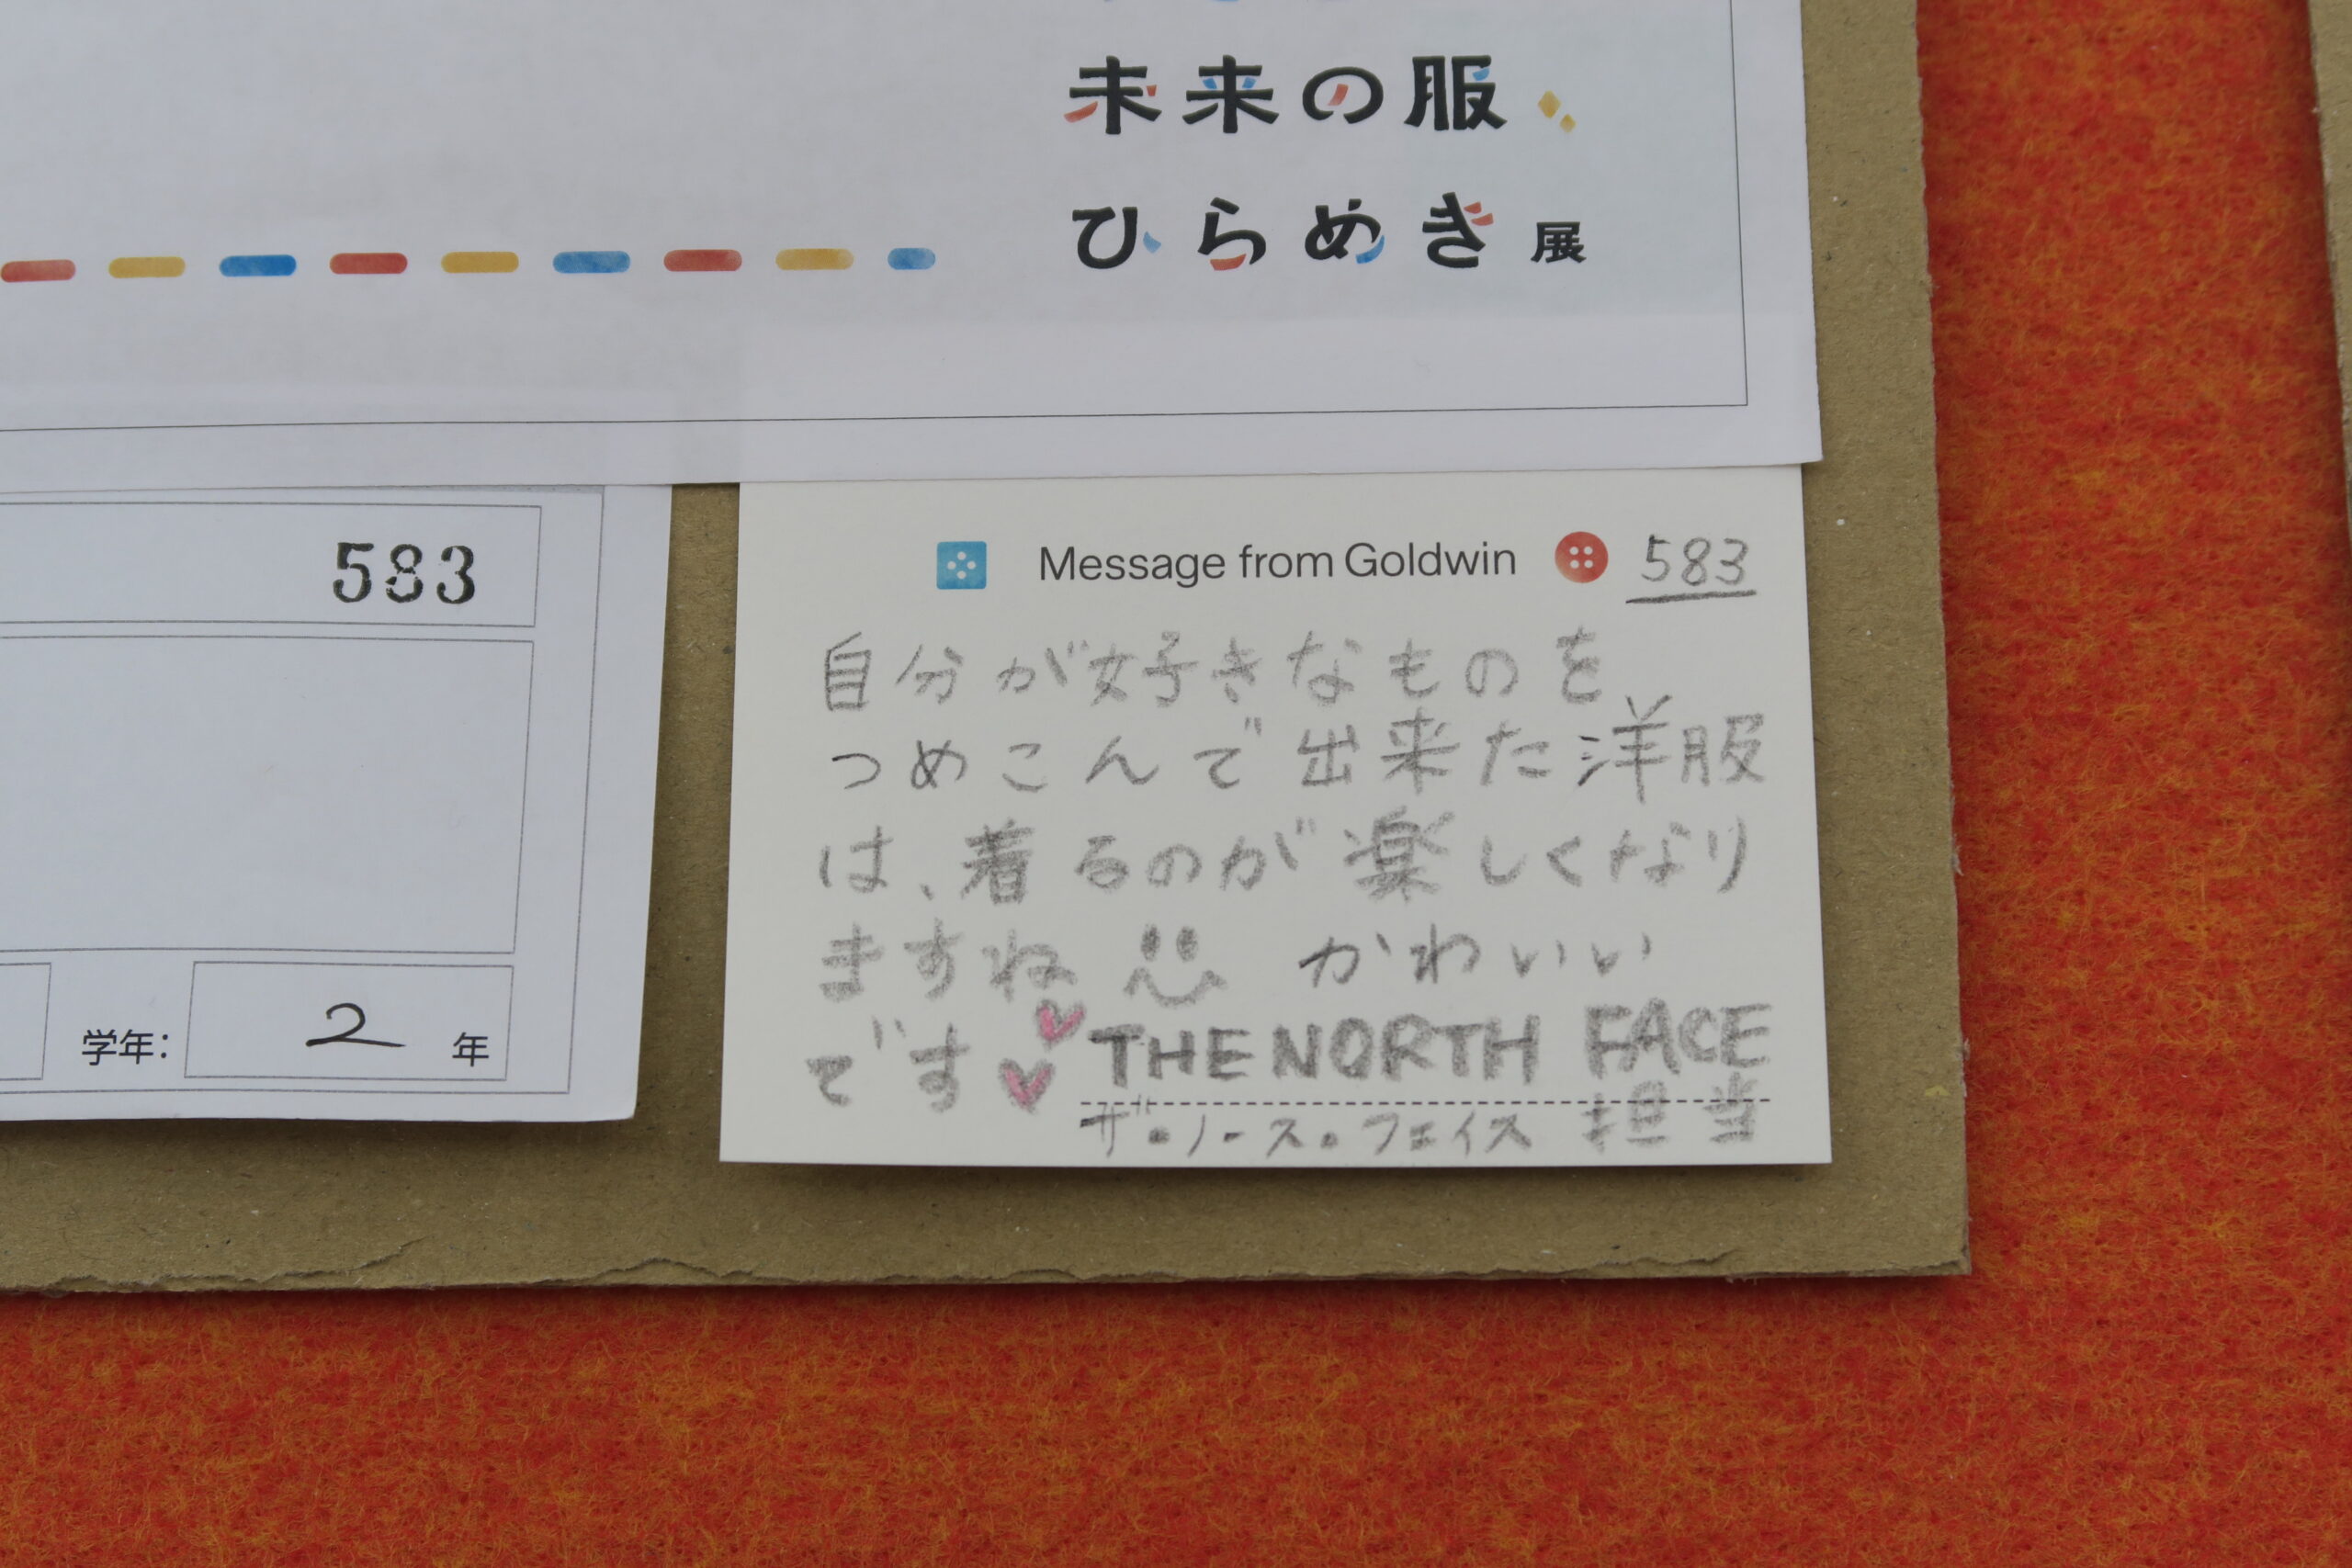 未来の服
ひらめき展
583
学年: 2 年
Message from Goldwin 583
自分が好きなものを
つめこんで出来た洋服
は、着るのが楽しくなり
ますね かわいい
です THE NORTH FACE
ザ・ノース・フェイス 担当